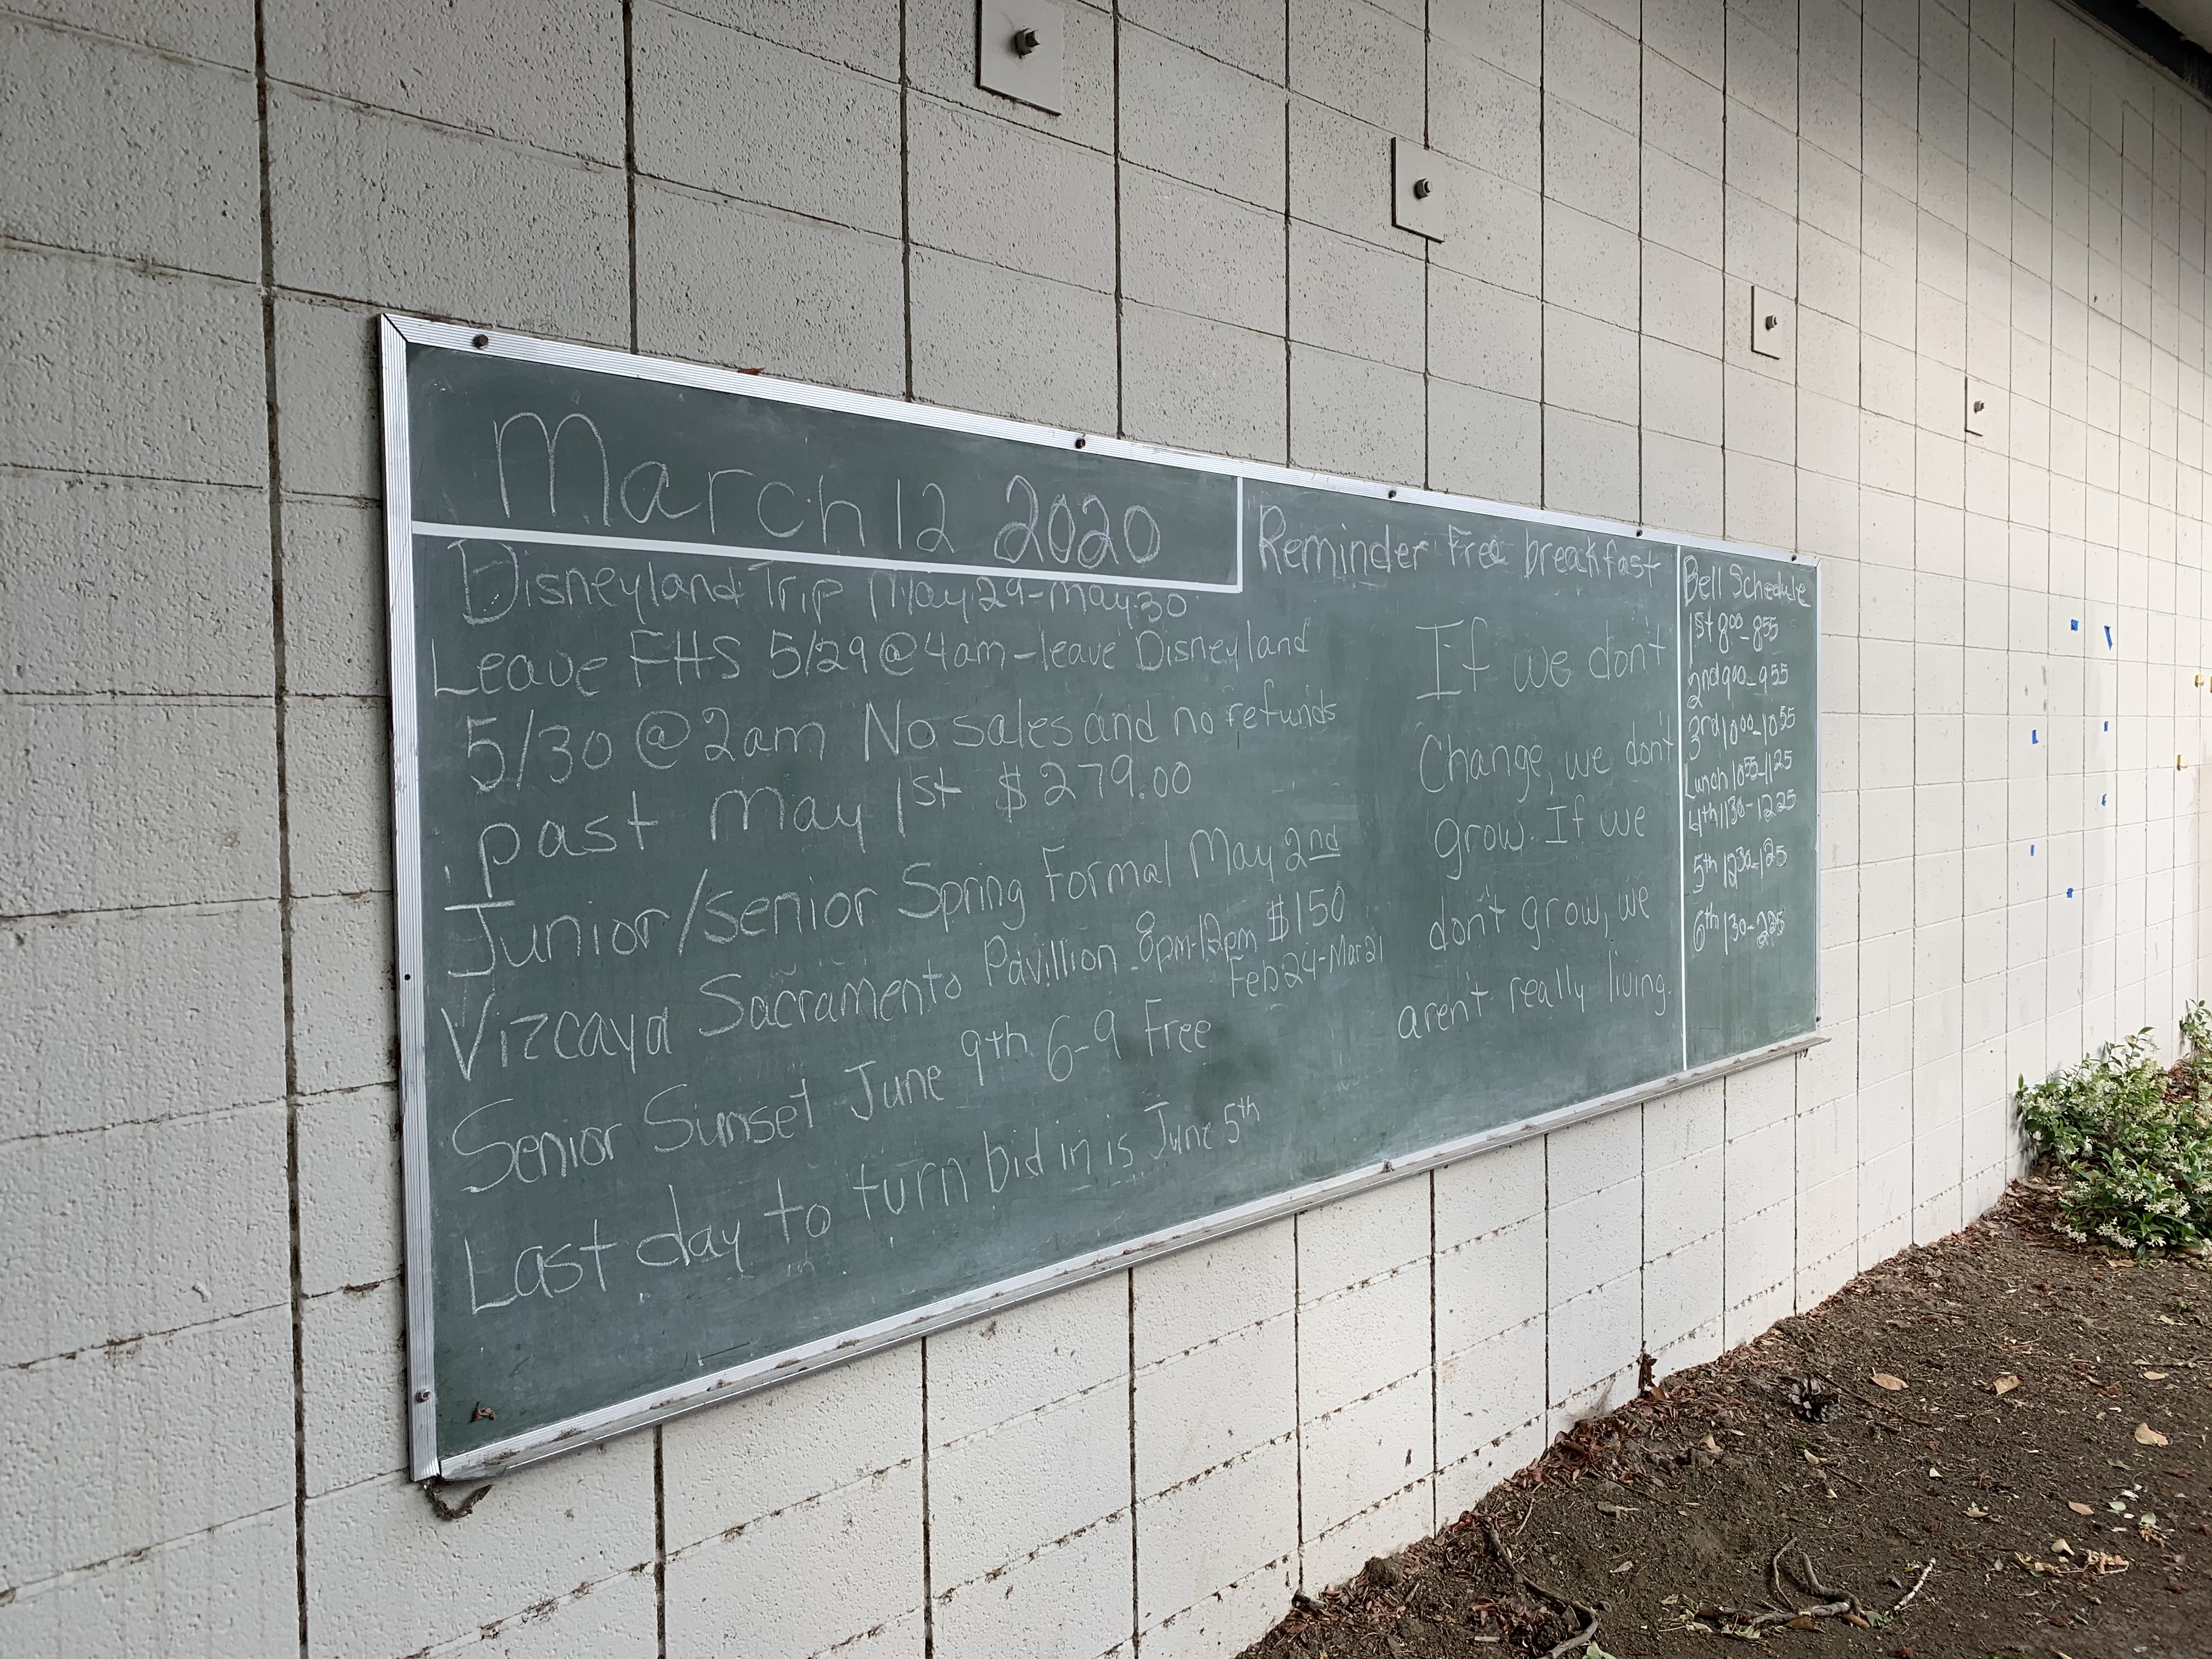 March 12 2020
Disneyland Trip May 29-May 30
Leave FHS 5/29 @ 4am - leave Disneyland
5/30 @ 2am No sales and no refunds
past May 1st $279.00
Junior/Senior Spring Formal May 2nd
Vizcaya Sacramento Pavillion 8pm-12pm $150
Feb 24-Mar 21
Senior Sunset June 9th 6-9 Free
Last day to turn bid in is June 5th
Reminder Free breakfast
If we don't
Change, we don't
grow. If we
don't grow, we
aren't really living.
Bell Schedule
1st 800-855
2nd 900-955
3rd 1000-1055
Lunch 1055-1125
4th 1130-1225
5th 1230-125
6th 130-225